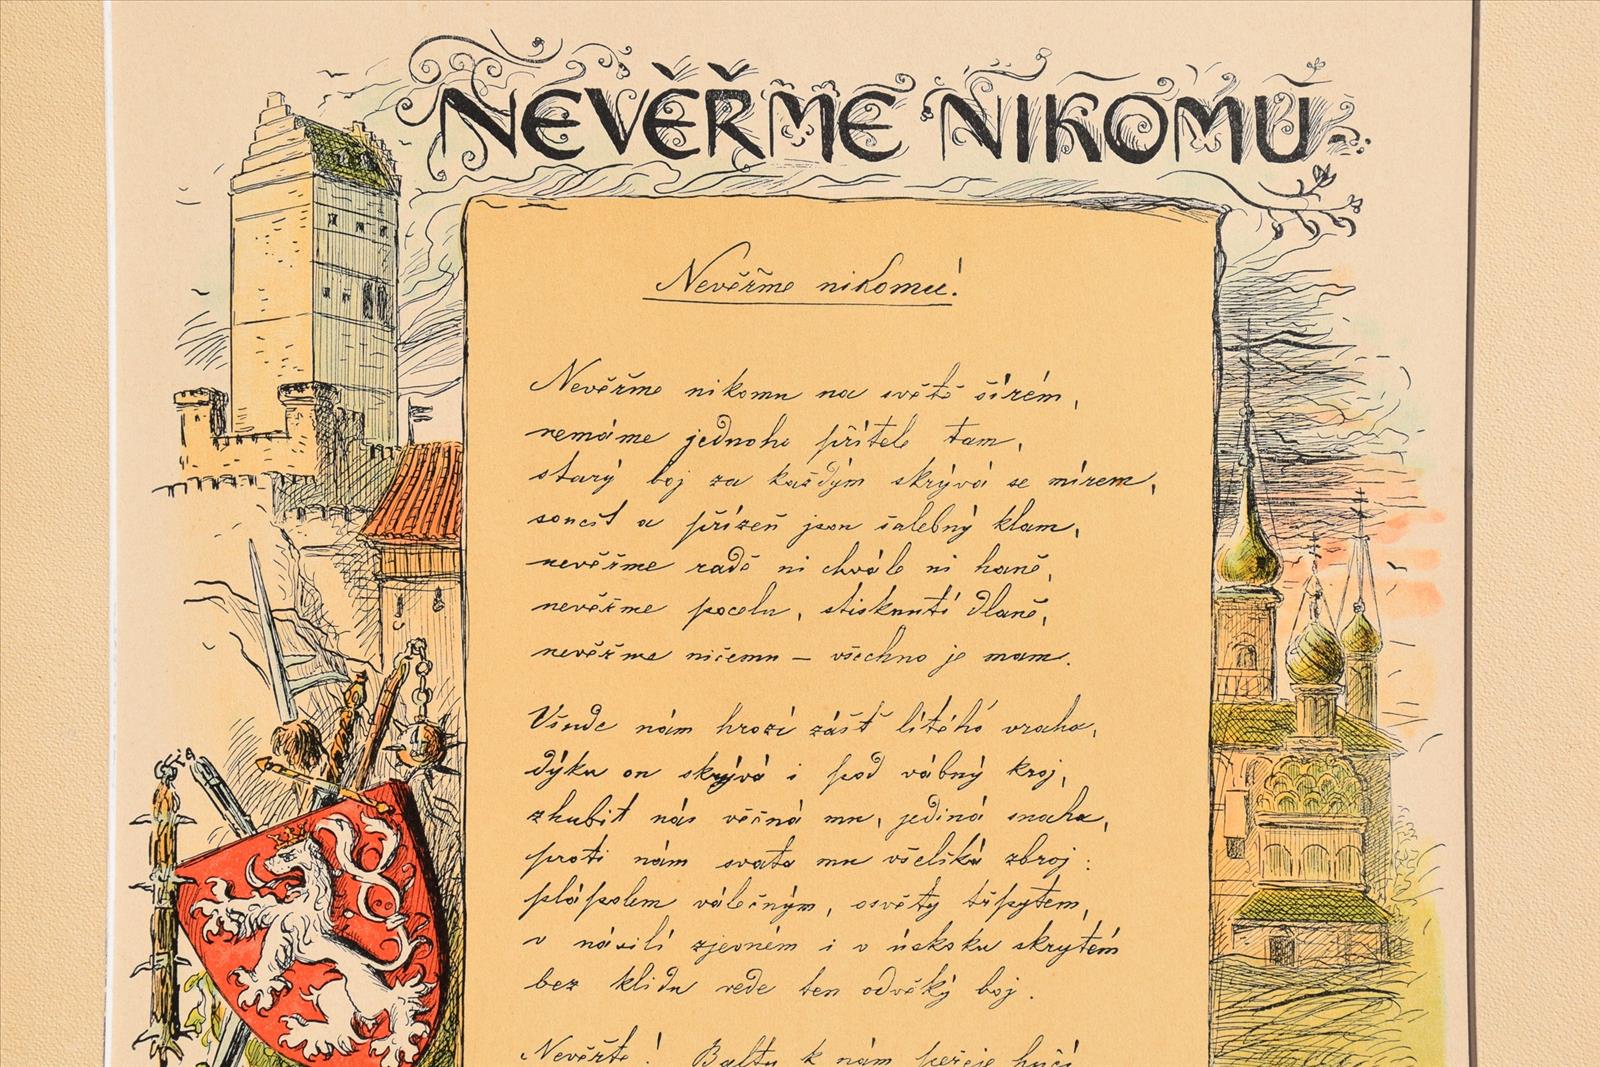 NEVĚŘME NIKOMU
Nevěřme nikomu!
Nevěřme nikomu na světě šírém,
nemáme jednoho přítele tam,
starý boj za každým skrývá se mírem,
soucit a přízeň jsou šalebný klam,
nevěřme radě ni chvále ni haně,
nevěřme pocelu, stisknutí dlaně,
nevěřme ničemu – všechno je mam.
Všude nám hrozí zášť lítého vraha,
dýku on skrývá i pod vábný kroj,
zhubit nás věčná mu, jediná snaha,
proti nám svata mu všeliká zbroj:
plápolem válečným, osvěty třpytem,
v násilí zjevném i v úskoku skrytém
bez klidu vede ten odvěký boj.
Nevěřte! Baltu k nám peřeje hučí